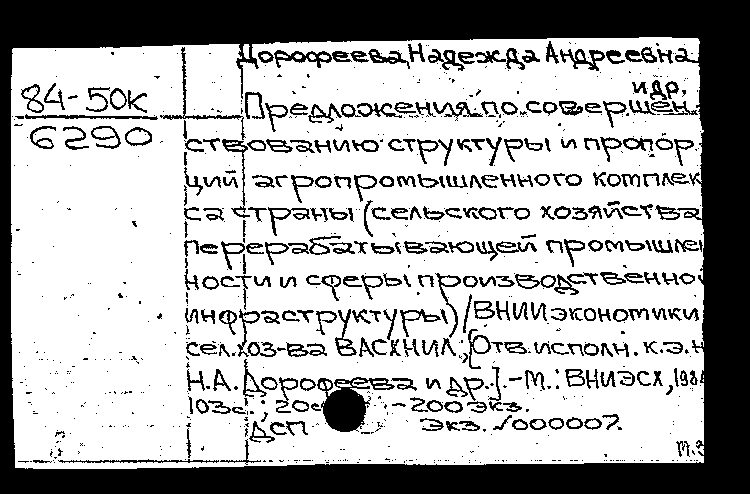 Дорофеева Надежда Андреевна
и др.
84-50к
6290
Предложения по совершен-
ствованию структуры и пропор
ций агропромышленного комплек
са страны (сельского хозяйства
перерабатывающей промышлен
ности и сферы производственной
инфраструктуры) / ВНИИ экономики
сел. хоз-ва ВАСХНИЛ; [Отв. исполн. к.э.н
Н.А. Дорофеева и др.]. - М.: ВНИЭСХ, 198
103с., 20с - 200 экз.
ДСП экз. №000007.